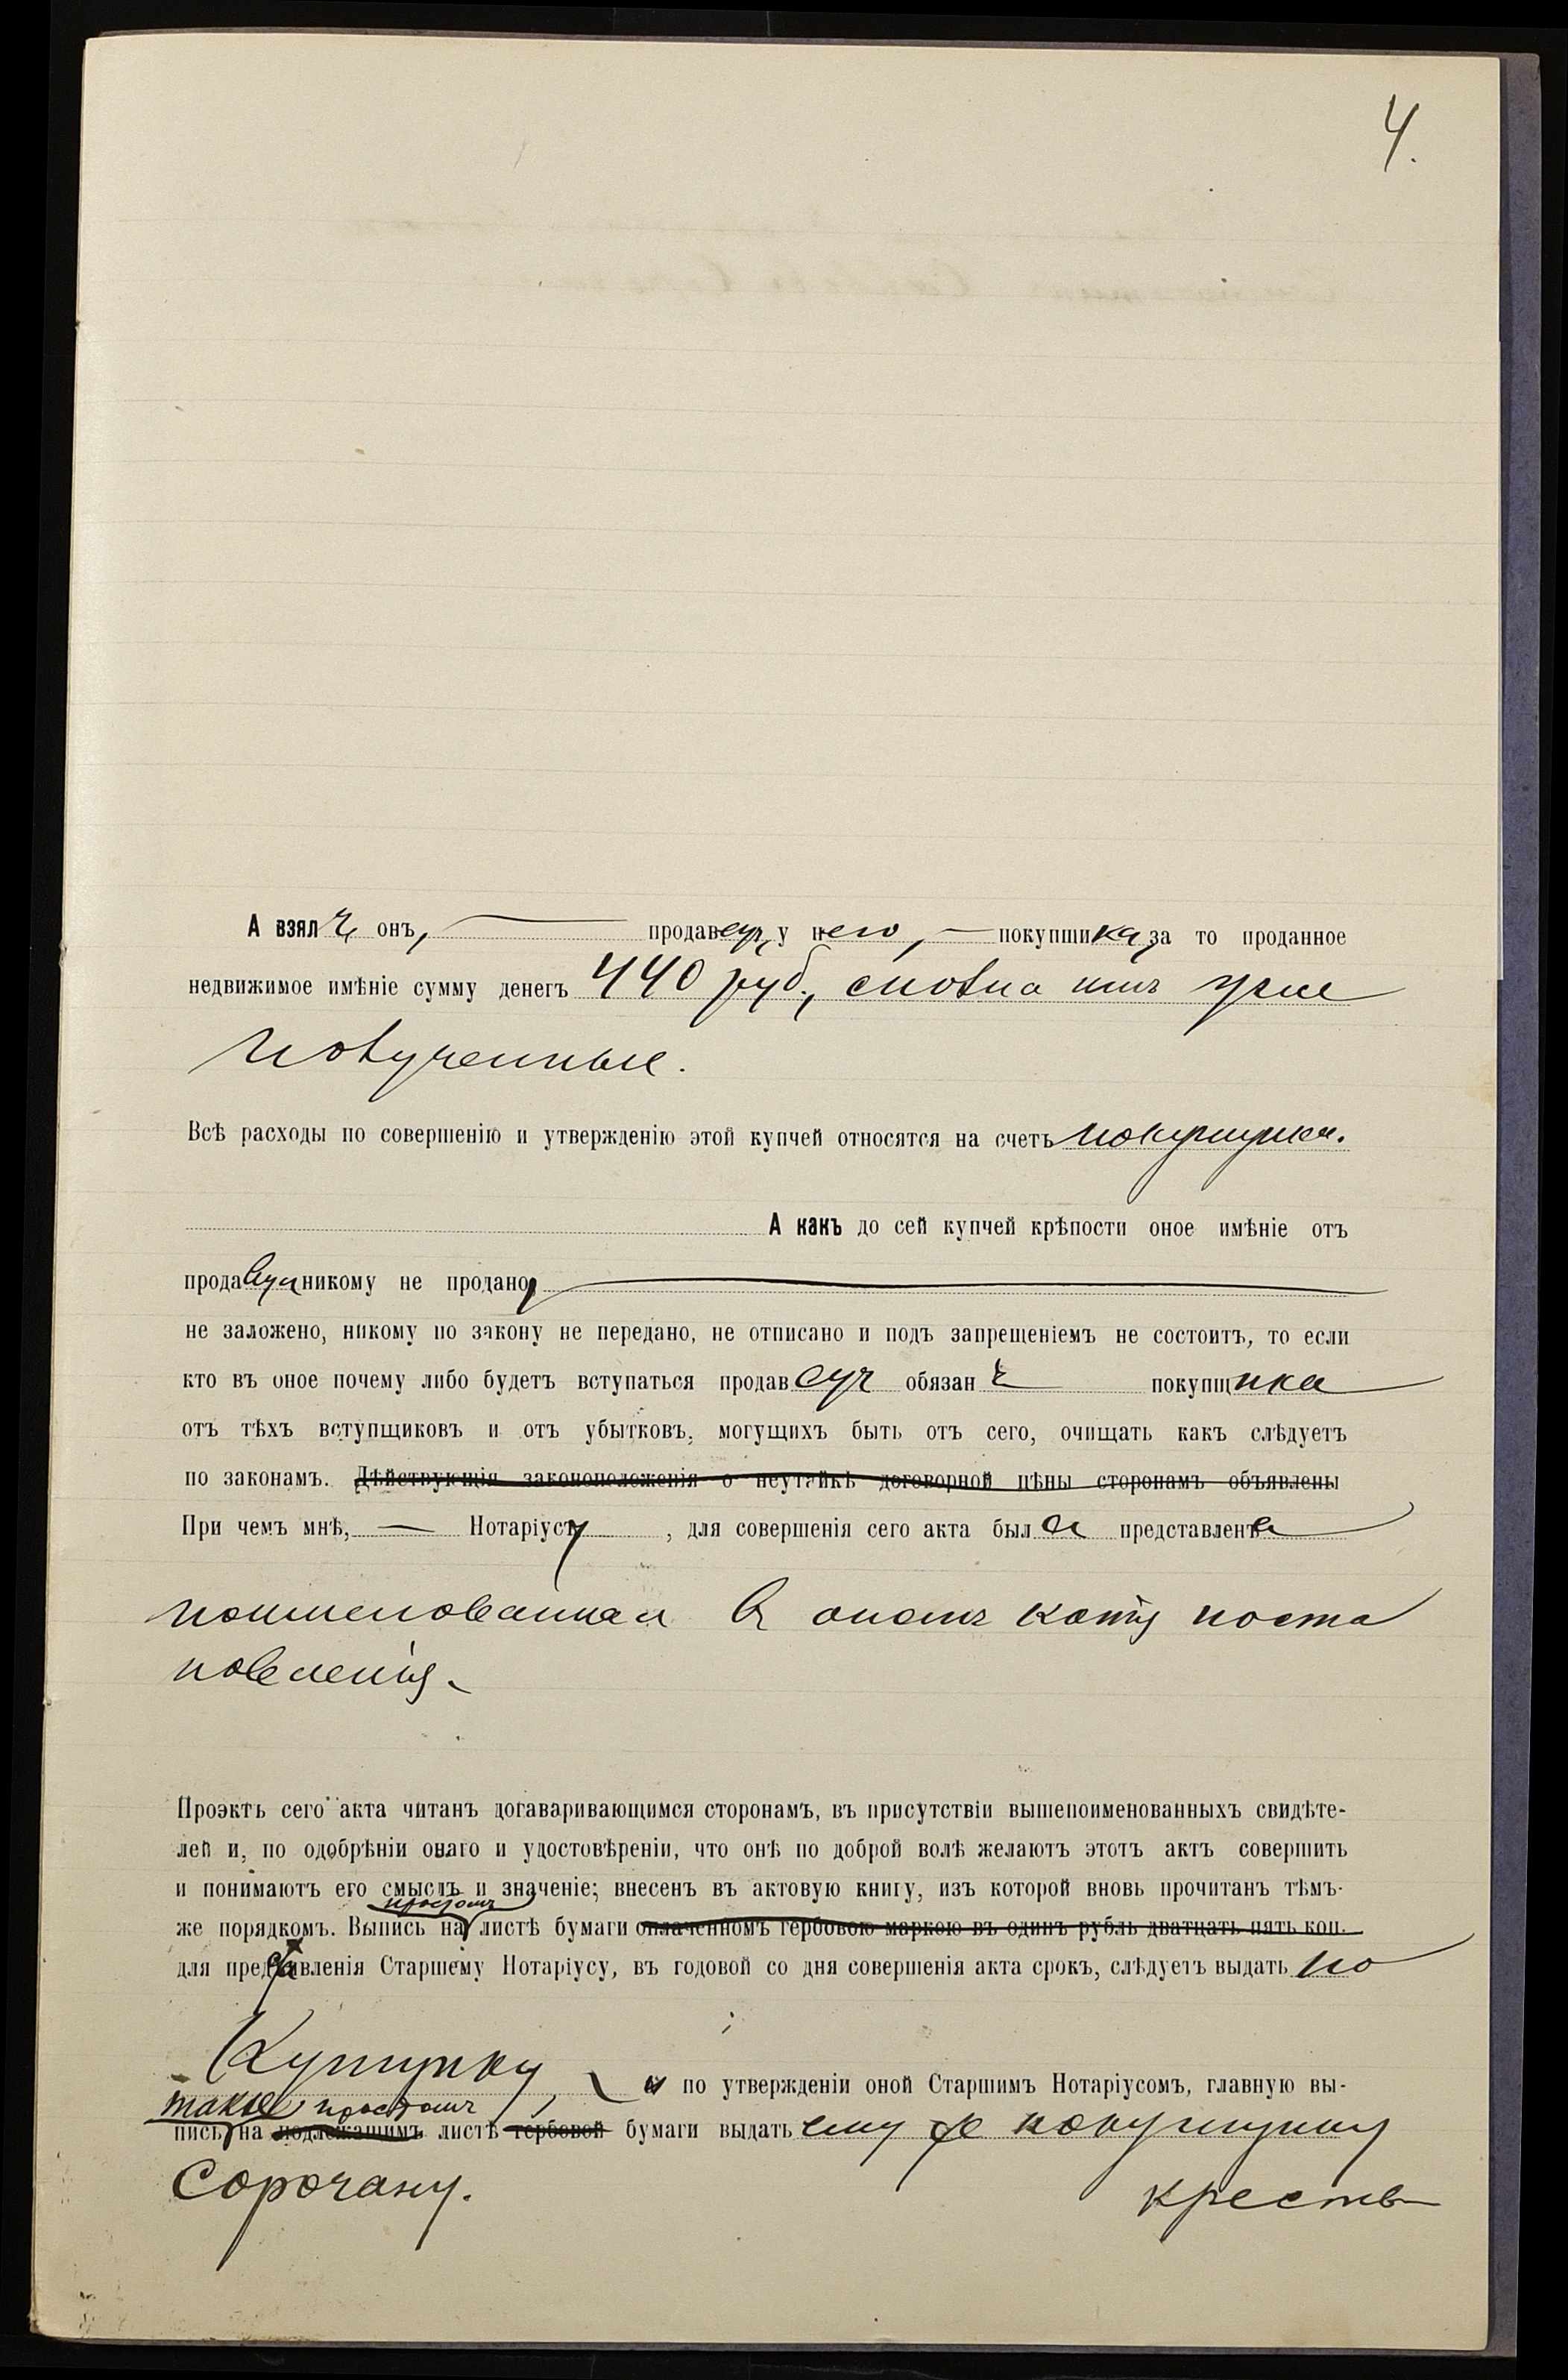 4.
А взялъ онъ, продавецъ, у него, покупщика за то проданное
недвижимое имѣніе сумму денегъ 440 руб., сполна имъ уже
полученные.
Всѣ расходы по совершенію и утвержденію этой купчей относятся на счетъ покупщика.
А какъ до сей купчей крѣпости оное имѣніе отъ
продавца никому не продано,
не заложено, никому по закону не передано, не отписано и подъ запрещеніемъ не состоитъ, то если
кто въ оное почему либо будетъ вступаться продавецъ обязанъ покупщика
отъ тѣхъ вступщиковъ и отъ убытковъ, могущихъ быть отъ сего, очищать какъ слѣдуетъ
по законамъ. Дѣйствующія законоположенія о неутайкѣ договорной цѣны сторонамъ объявлены
При чемъ мнѣ, Нотаріусу, для совершенія сего акта была представлена
поименованная въ ономъ копія поста
новленія.
Проэктъ сего акта читанъ договаривающимся сторонамъ, въ присутствіи вышепоименованныхъ свидѣте-
лей и, по одобрѣніи онаго и удостовѣреніи, что онѣ по доброй волѣ желаютъ этотъ актъ совершить
и понимаютъ его смыслъ и значеніе; внесенъ въ актовую книгу, изъ которой вновь прочитанъ тѣмъ-
простомъ
же порядкомъ. Выпись на листѣ бумаги оплаченномъ гербовою маркою въ одинъ рубль двадцать пять коп.
для представленія Старшему Нотаріусу, въ годовой со дня совершенія акта срокъ, слѣдуетъ выдать по
купщику, и по утвержденіи оной Старшимъ Нотаріусомъ, главную вы-
также простомъ
пись на подлежащимъ листѣ гербовой бумаги выдать ему же покупщику
Сорочану. крестья